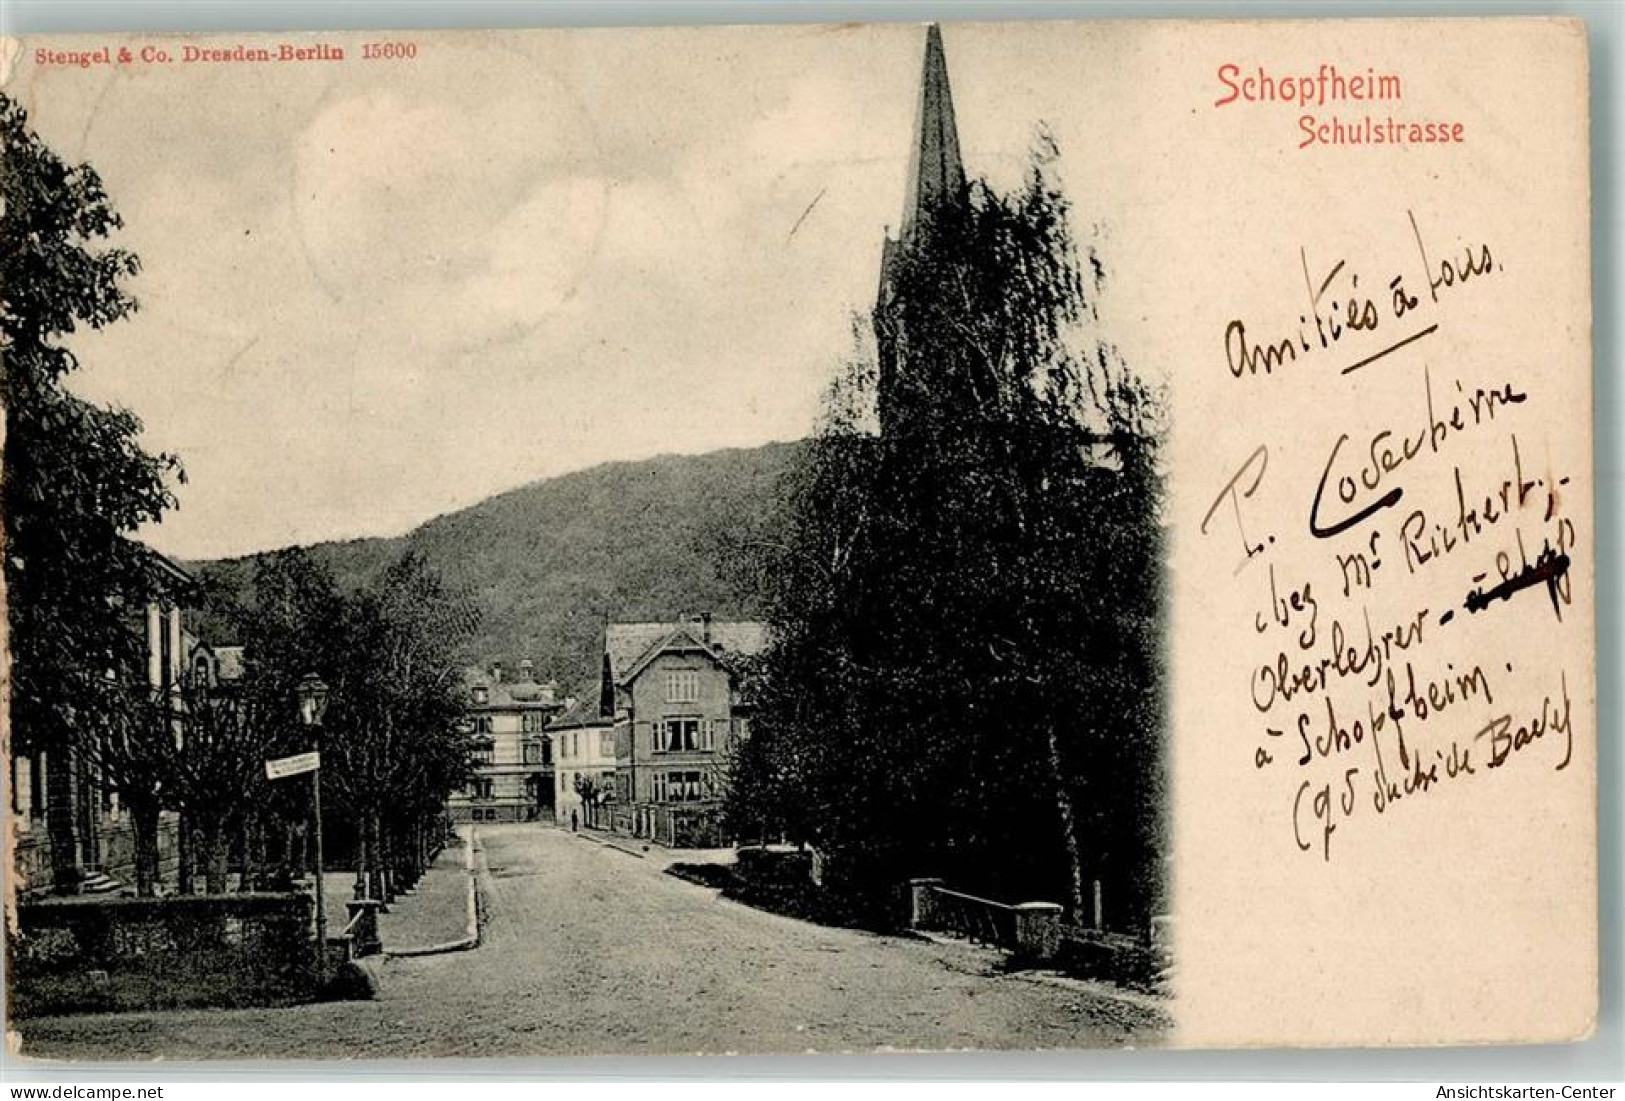 Stengel & Co. Dresden-Berlin 15600
Schopfheim
Schulstrasse
Amitiés à tous.
P. Codechèvre
chez Mr Richert,
Oberlehrer -
à Schopfheim.
(gd duché de Bade)
delcampe.net
Ansichtskarten-Center